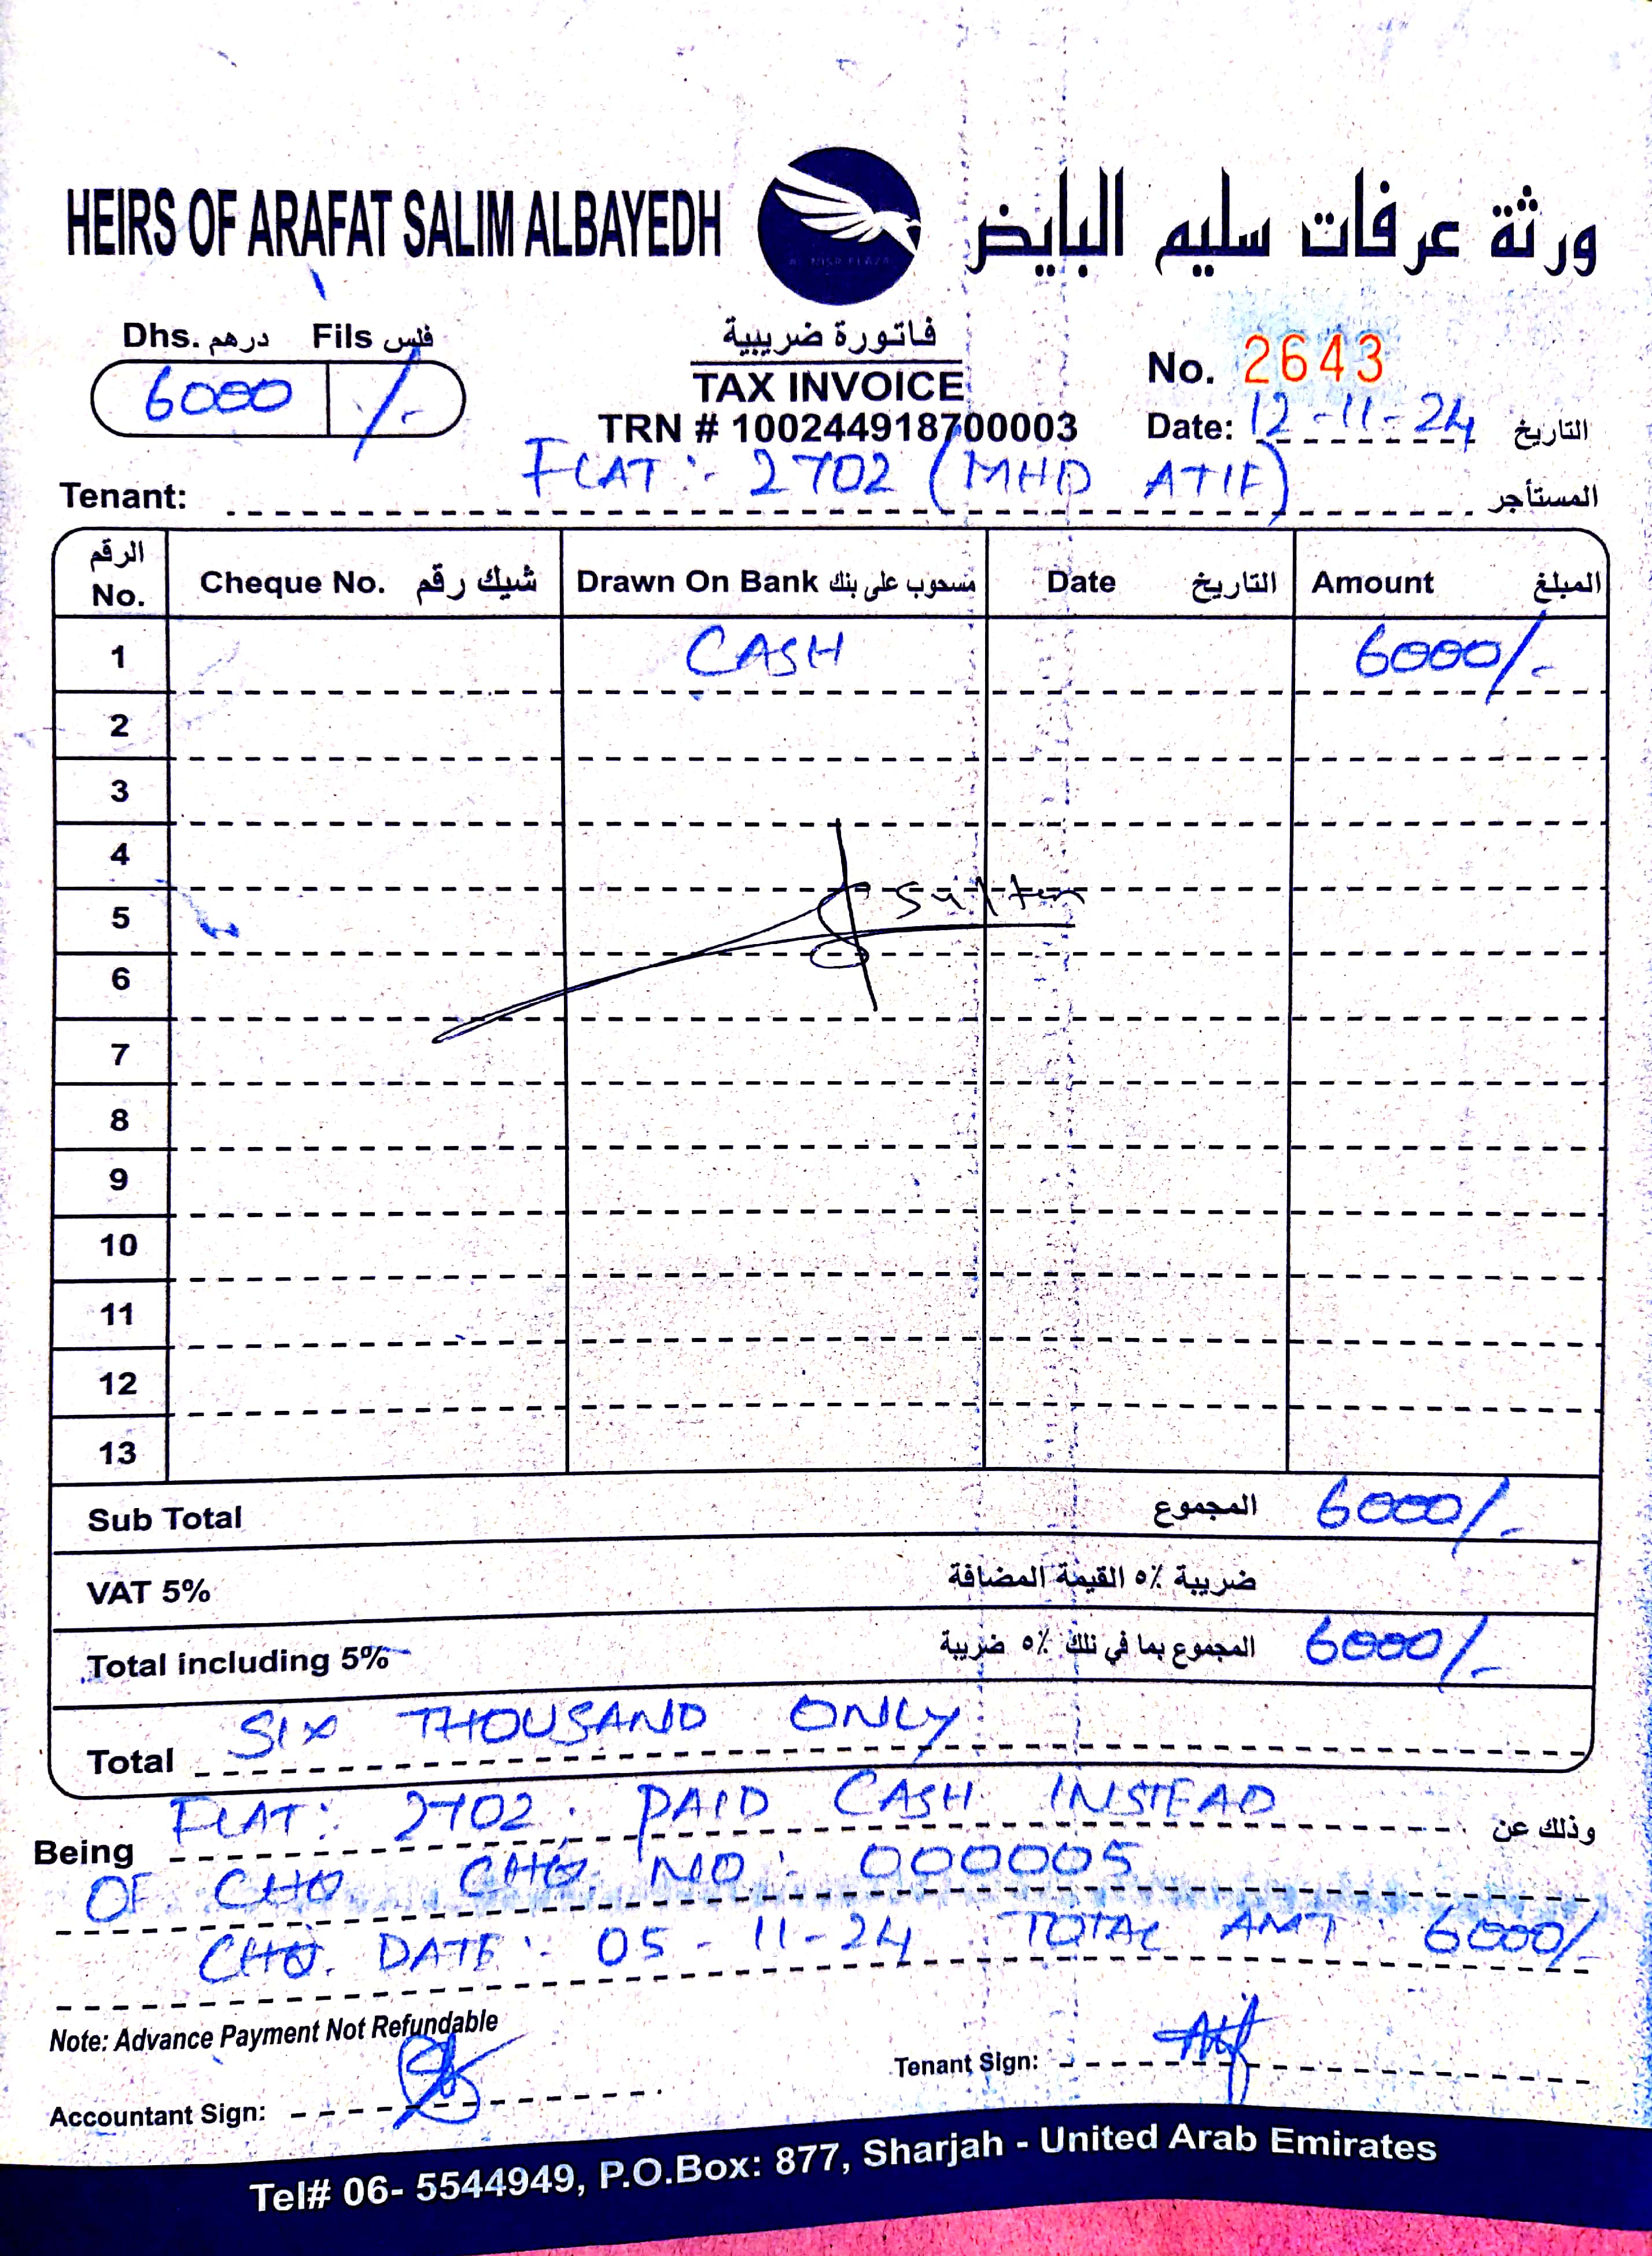 HEIRS OF ARAFAT SALIM ALBAYEDH ورثة عرفات سليم البايض
Dhs. درهم Fils فلس
6000 /-
فاتورة ضريبية
TAX INVOICE
TRN # 100244918700003
No. 2643
Date: 12-11-24 التاريخ
Tenant: FLAT:- 2702 (MHD ATIF) المستأجر
الرقم No. Cheque No. شيك رقم Drawn On Bank مسحوب على بنك Date التاريخ Amount المبلغ
1 CASH 6000/-
2
3
4
5 Sultan
6
7
8
9
10
11
12
13
Sub Total المجموع 6000/-
VAT 5% ضريبة ٥٪ القيمة المضافة
Total including 5% المجموع بما في ذلك ٥٪ ضريبة 6000/-
Total SIX THOUSAND ONLY
Being FLAT: 2702. PAID CASH INSTEAD وذلك عن
OF CHQ CHQ. NO: 000005
CHQ. DATE:- 05-11-24 TOTAL AMT: 6000/-
Note: Advance Payment Not Refundable
Tenant Sign: Atif
Accountant Sign:
Tel# 06- 5544949, P.O.Box: 877, Sharjah - United Arab Emirates